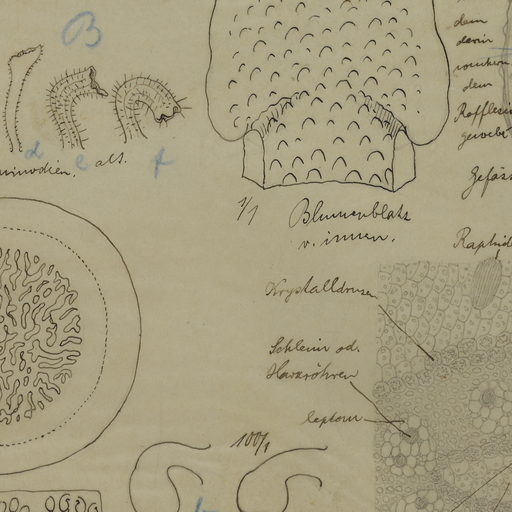 B
d e f
alt.
1/1 Blumenblatt
v. innen.
dem
darin
dem
Raffles
gewebe
Gefäss
Raphid
Krystalldrusen
Schleim od.
Harzröhren
leptom
100/1